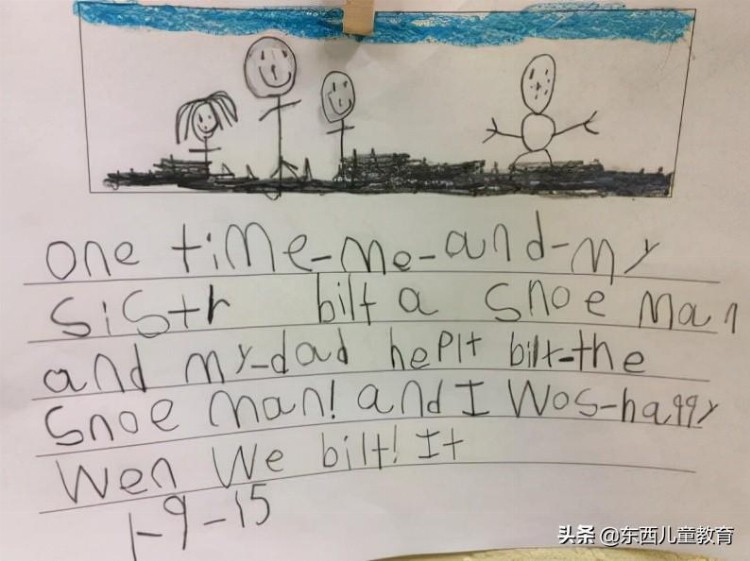 one time-me-and-my
sistr bilt a snoe man
and my-dad heplt bilt-the
snoe man! and I wos-happy
wen we bilt! It
1-9-15
头条 @东西儿童教育